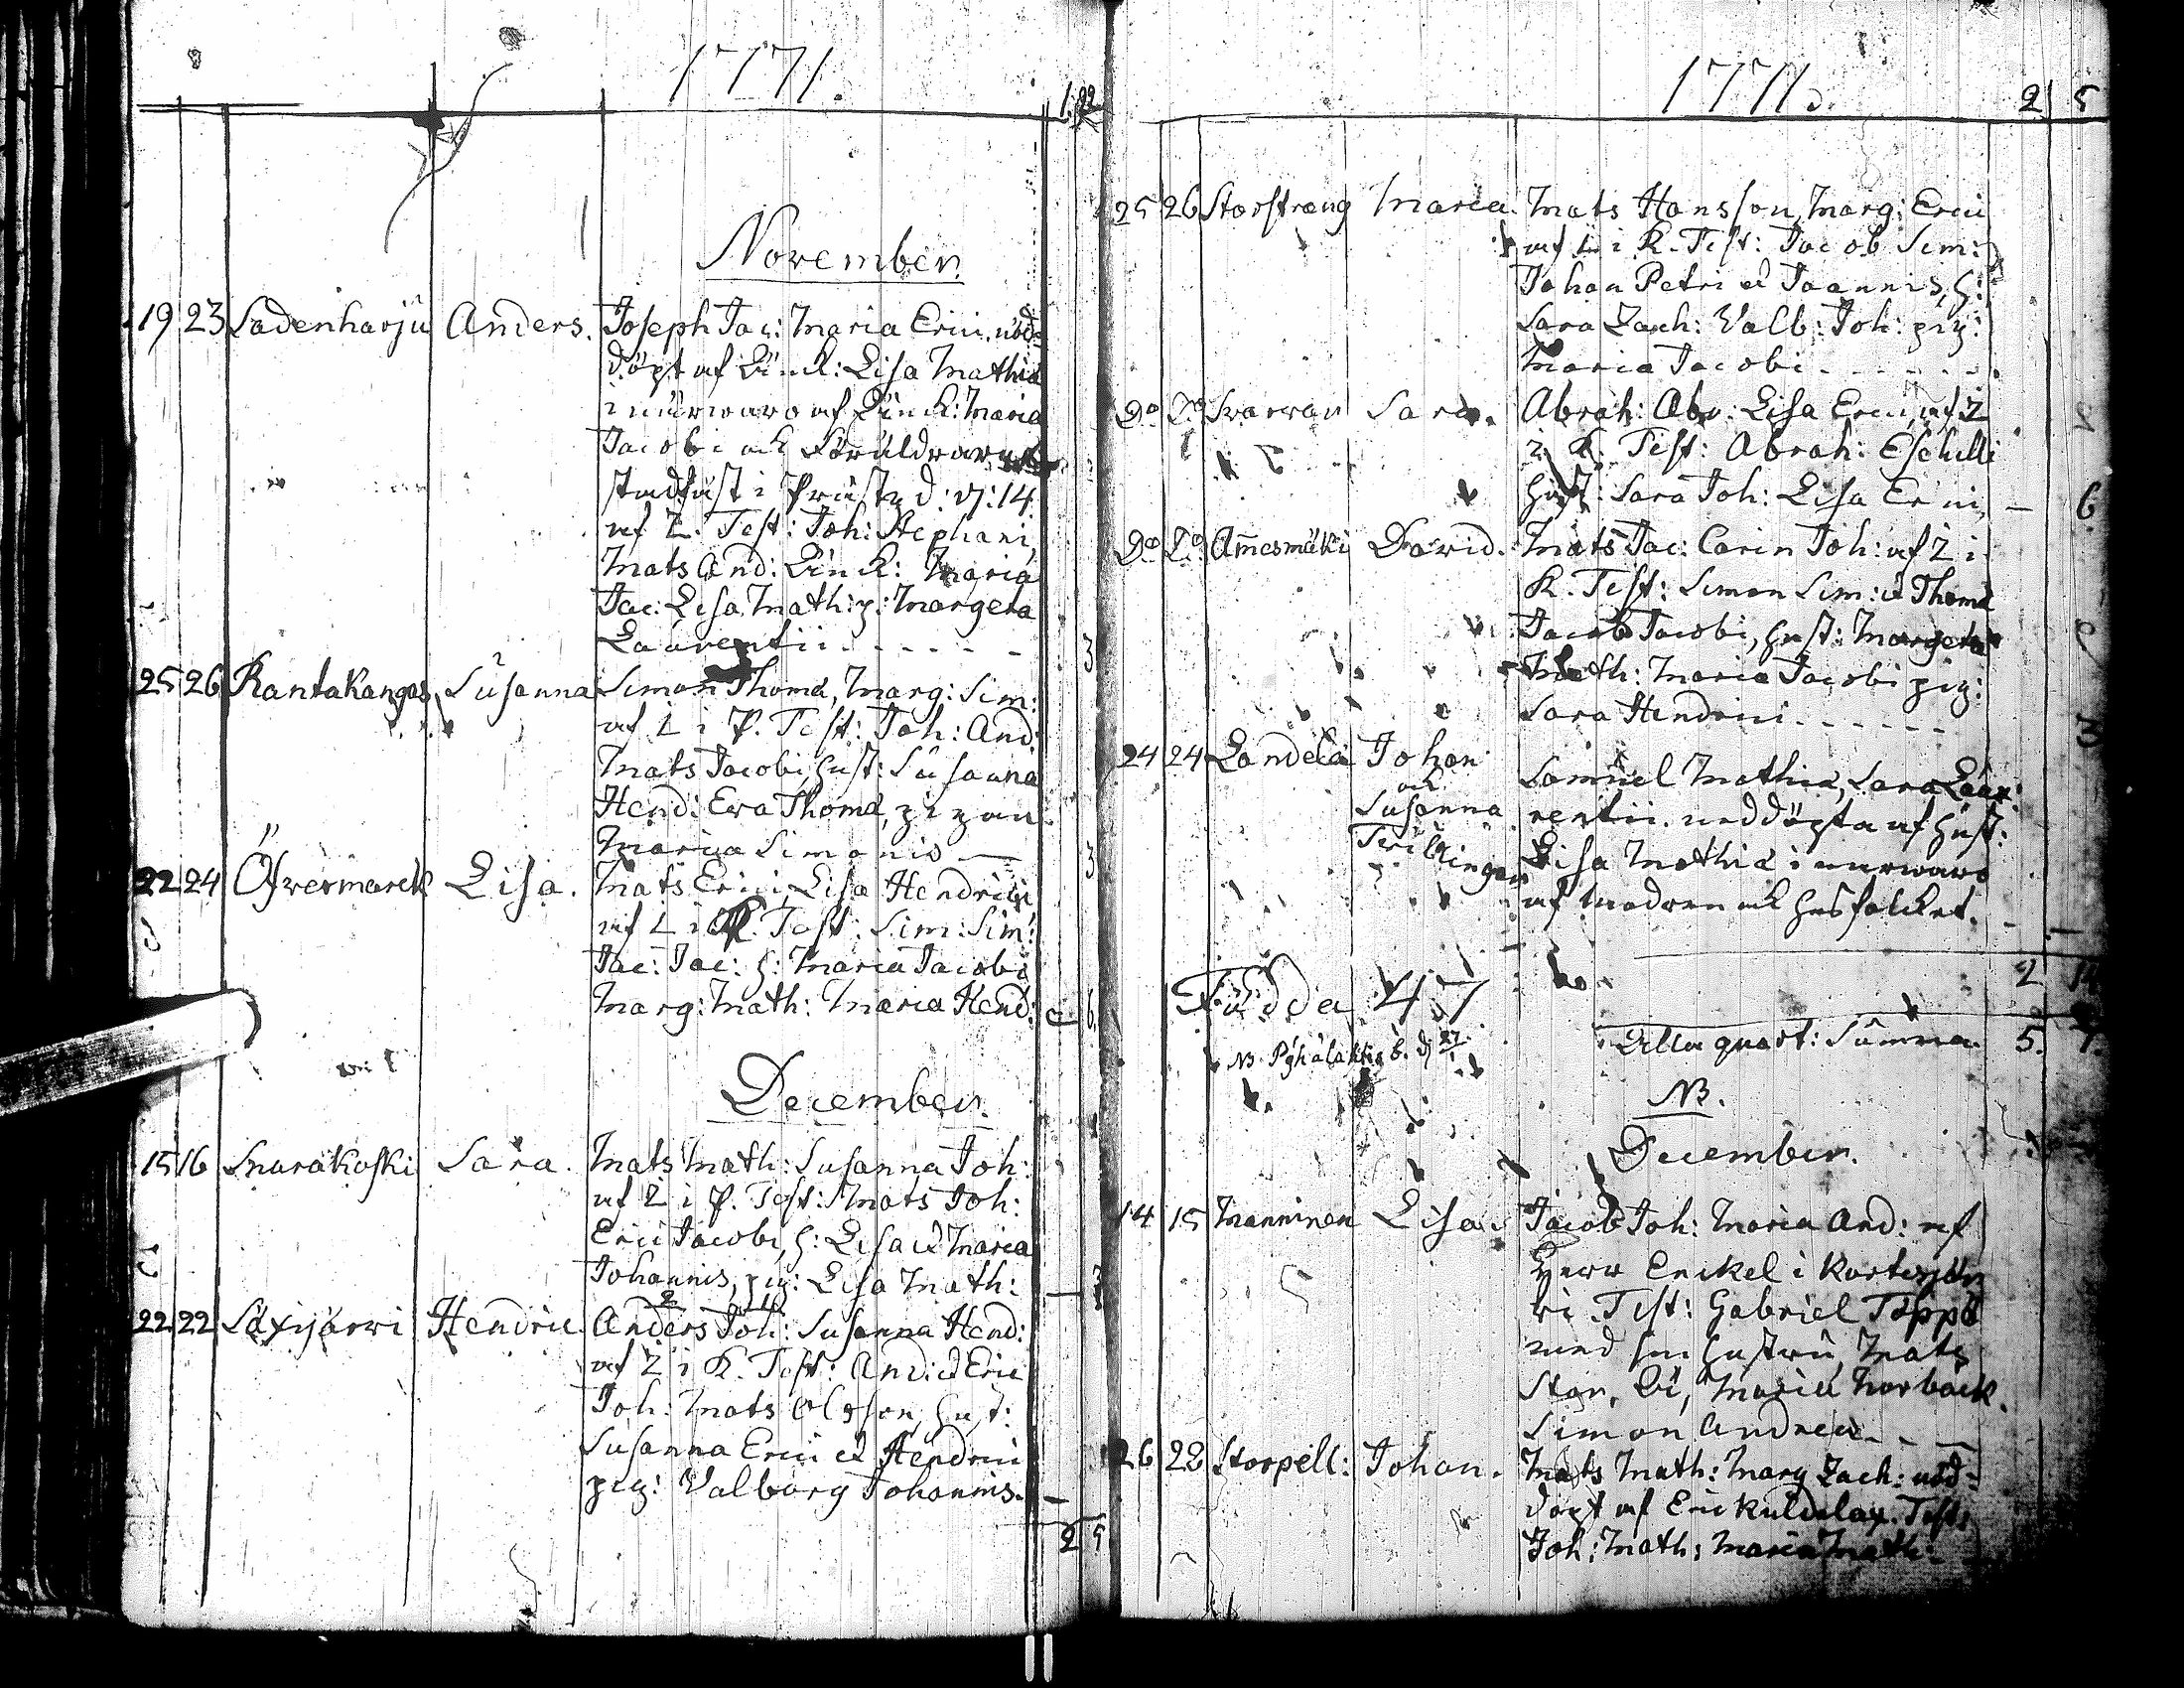 1771.
1. 22
November.
19 23 Sadenharju Anders. Joseph Jac: Maria Erici. nöd=
döpt af Qinck: Lisa Mathiæ
i närwaro af Qinck: Maria
Jacobi och Föräldrarne
stadfäst i Prästg d: 14
af L. Test: Joh: Stephani,
Mats And: Qinck: Maria
Jac: Lisa Math: p: Margeta
Laurentii - - - - - 3
25 26 Rantakangas Susanna Simon Thomæ, Marg: Sim:
af L i P. Test: Joh: And:
Mats Jacobi, hust: Susanna
Hend: Eva Thomæ, pigan
Maria Simonis — 3
22 24 Öfvermarck Lisa. Mats Erici, Lisa Hendrici
af L i K. Test: Sim: Sim:
Jac: Jac: h: Maria Jacobi
Marg: Math: Maria Hend: 6.
December.
15 16 Snarakoski Sara. Mats Math: Susanna Joh:
af L i P. Test: Mats Joh:
Eric Jacobi, h: Lisa et Maria
Johannis, pig: Lisa Math: — 3
22 22 Säxijärwi Hendric. Anders Joh: Susanna Hend:
af L i K. Test: And: et Eric
Joh: Mats Olsson, hust:
Susanna Erici et Hendrici
pig: Valborg Johannis. —
2 5
1771.
2 5
25 26 Storstrang Maria. Mats Hansson, Marg: Erici
af L i K. Test: Jacob Sim:
Johan Petri et Joannis, h:
Sara Zach: Valb: Joh: pig:
Maria Jacobi - - - - -
Do Do Svarvar Sara. Abrah: Abr: Lisa Erici af L
i K. Test: Abrah: Eschilli
hust: Sara Joh: Lisa Erici, — 6.
Do Do Amesmäki David. Mats Jac: Carin Joh: af L i
K. Test: Simon Sim: et Thomæ
Jacob Jacobi, hust: Margeta
Math: Maria Jacobi pig:
Sara Hendrici - - - - - 3
24 24 Landela Johan
och
Susanna
Twillingar
Samuel Mathiæ, Sara Lau-
rentii. nöddöpta af hust:
Lisa Mathiæ i närwaro
af modren och husfolcket.
2 14
Födda 47
Alla quart: Summa 5. 7.
NB.
December.
14 15 Manninen Lisa. Jacob Joh: Maria And: af
Herr Enckel i Kortesjär
vi. Test: Gabriel Toppo
med sin hustru, Mats
Maria Norback.
Simon Andreæ - - —
26 28 Storpell: Johan. Mats Math: Marg Zach: nöd-
döpt af Eric Kuldalax. Test:
Joh: Math: Maria Math: -